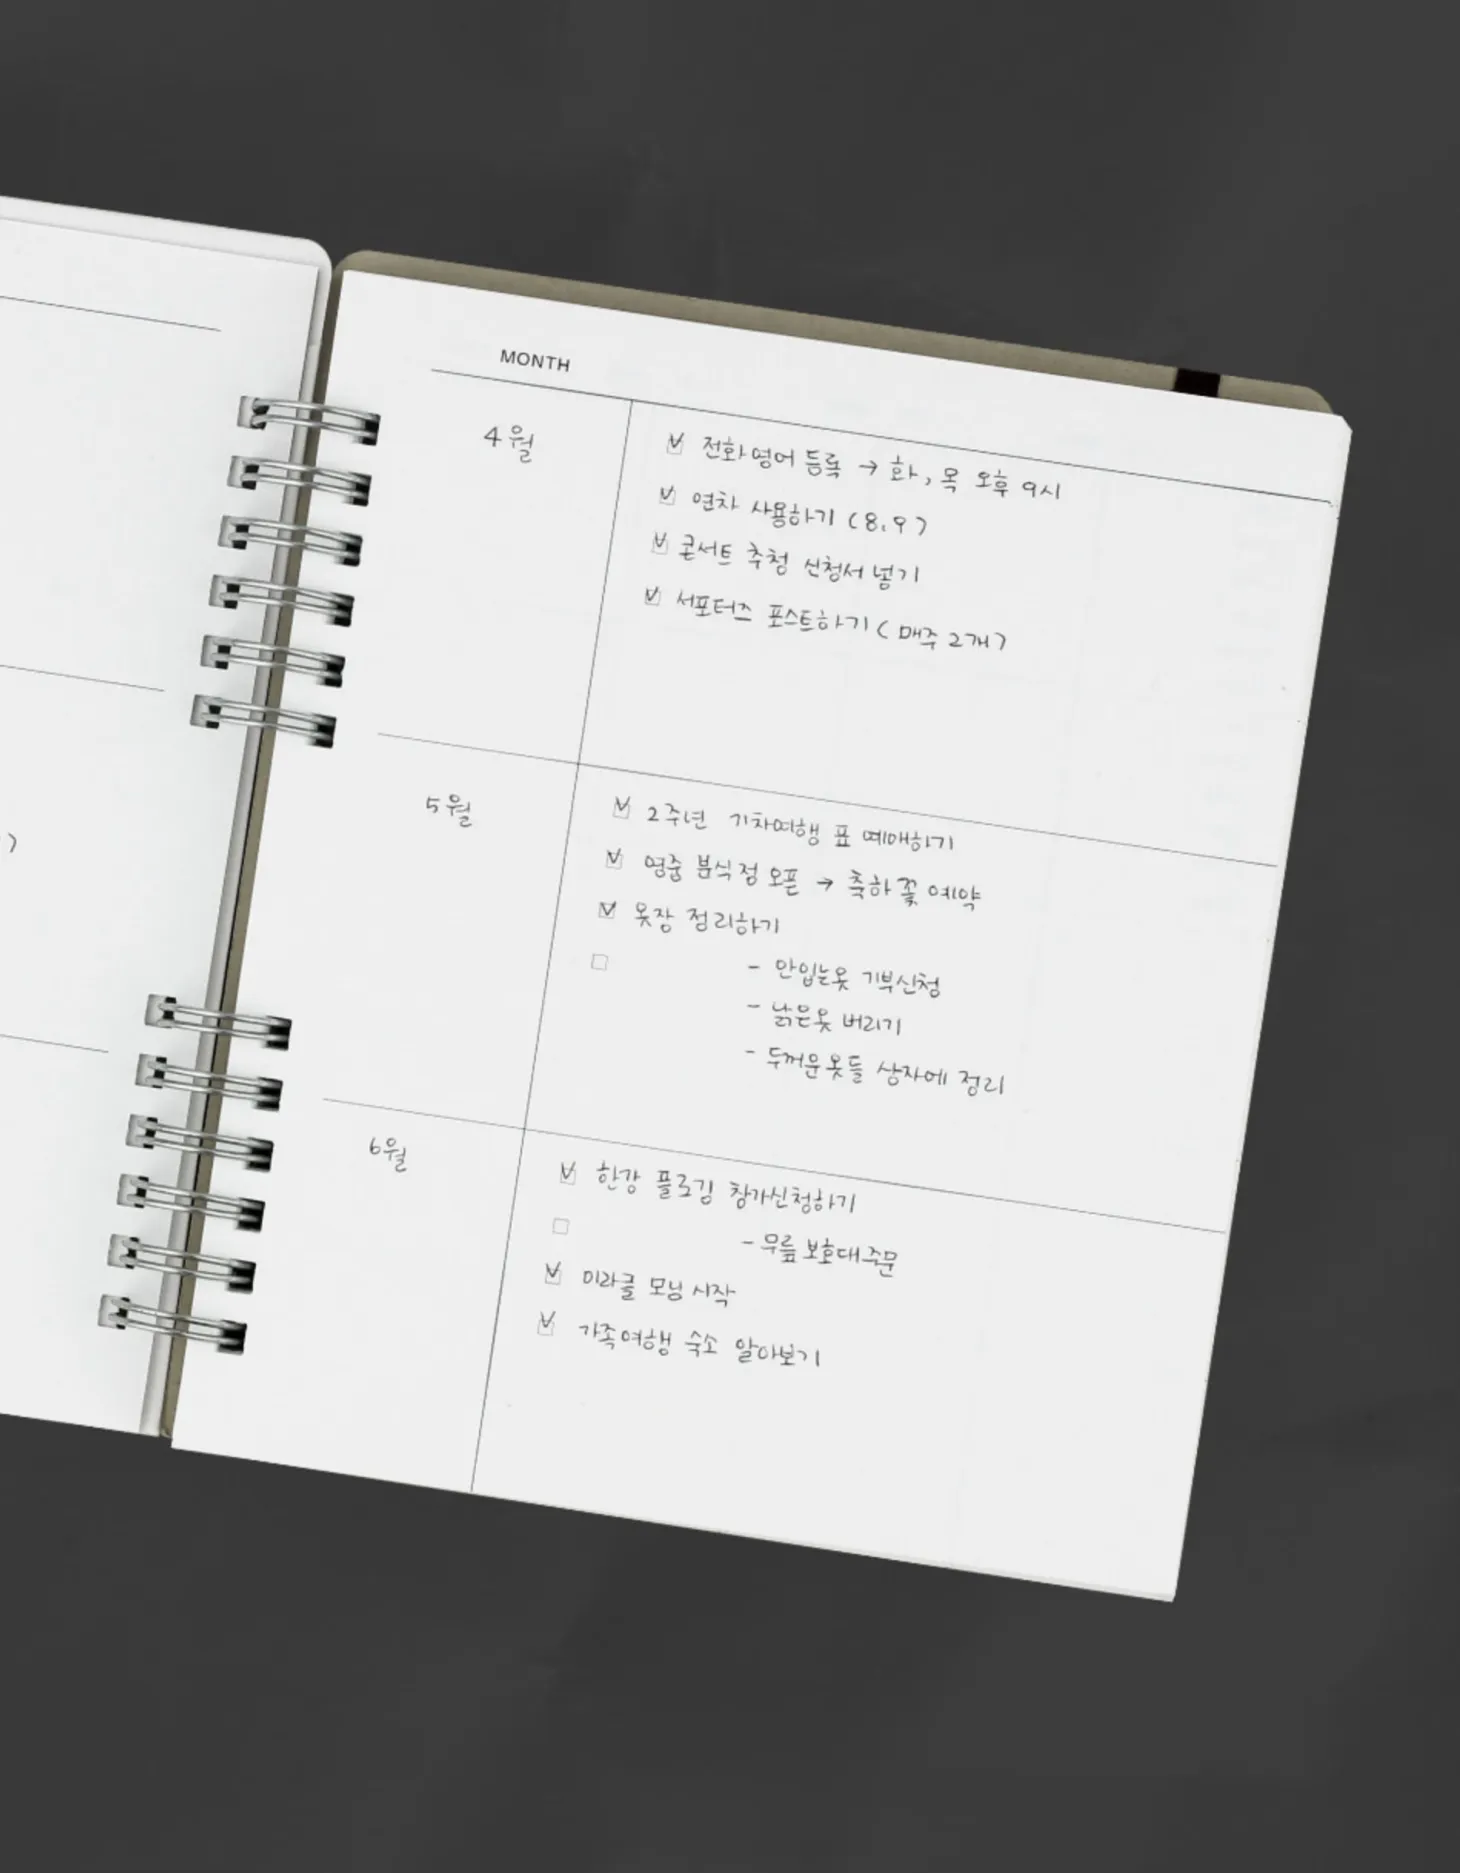 MONTH
4월
전화영어 등록 → 화, 목 오후 9시
연차 사용하기 (8, 9)
콘서트 추첨 신청서 넣기
서포터즈 포스트하기 (매주 2개)
5월
2주년 기차여행 표 예매하기
영중 분식점 오픈 → 축하 꽃 예약
옷장 정리하기
- 안입는옷 기부신청
- 낡은옷 버리기
- 두꺼운옷들 상자에 정리
6월
한강 플로깅 참가신청하기
- 무릎 보호대 주문
미라클 모닝 시작
가족여행 숙소 알아보기
)